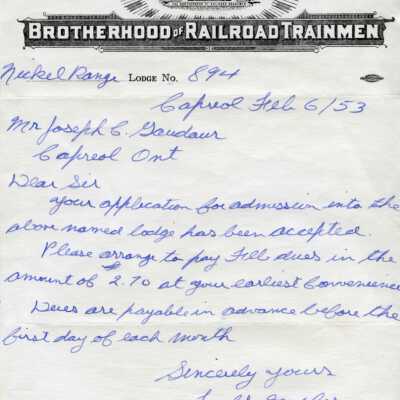 BROTHERHOOD OF RAILROAD TRAINMEN
Nickel Range LODGE NO. 894
Capreol Feb 6/53
Mr Joseph C. Gaudaur
Capreol Ont
Dear Sir
Your application for admission into the
above named lodge has been accepted.
Please arrange to pay Feb dues in the
amount of $2.70 at your earliest convenience
Dues are payable in advance before the
first day of each month
Sincerely yours